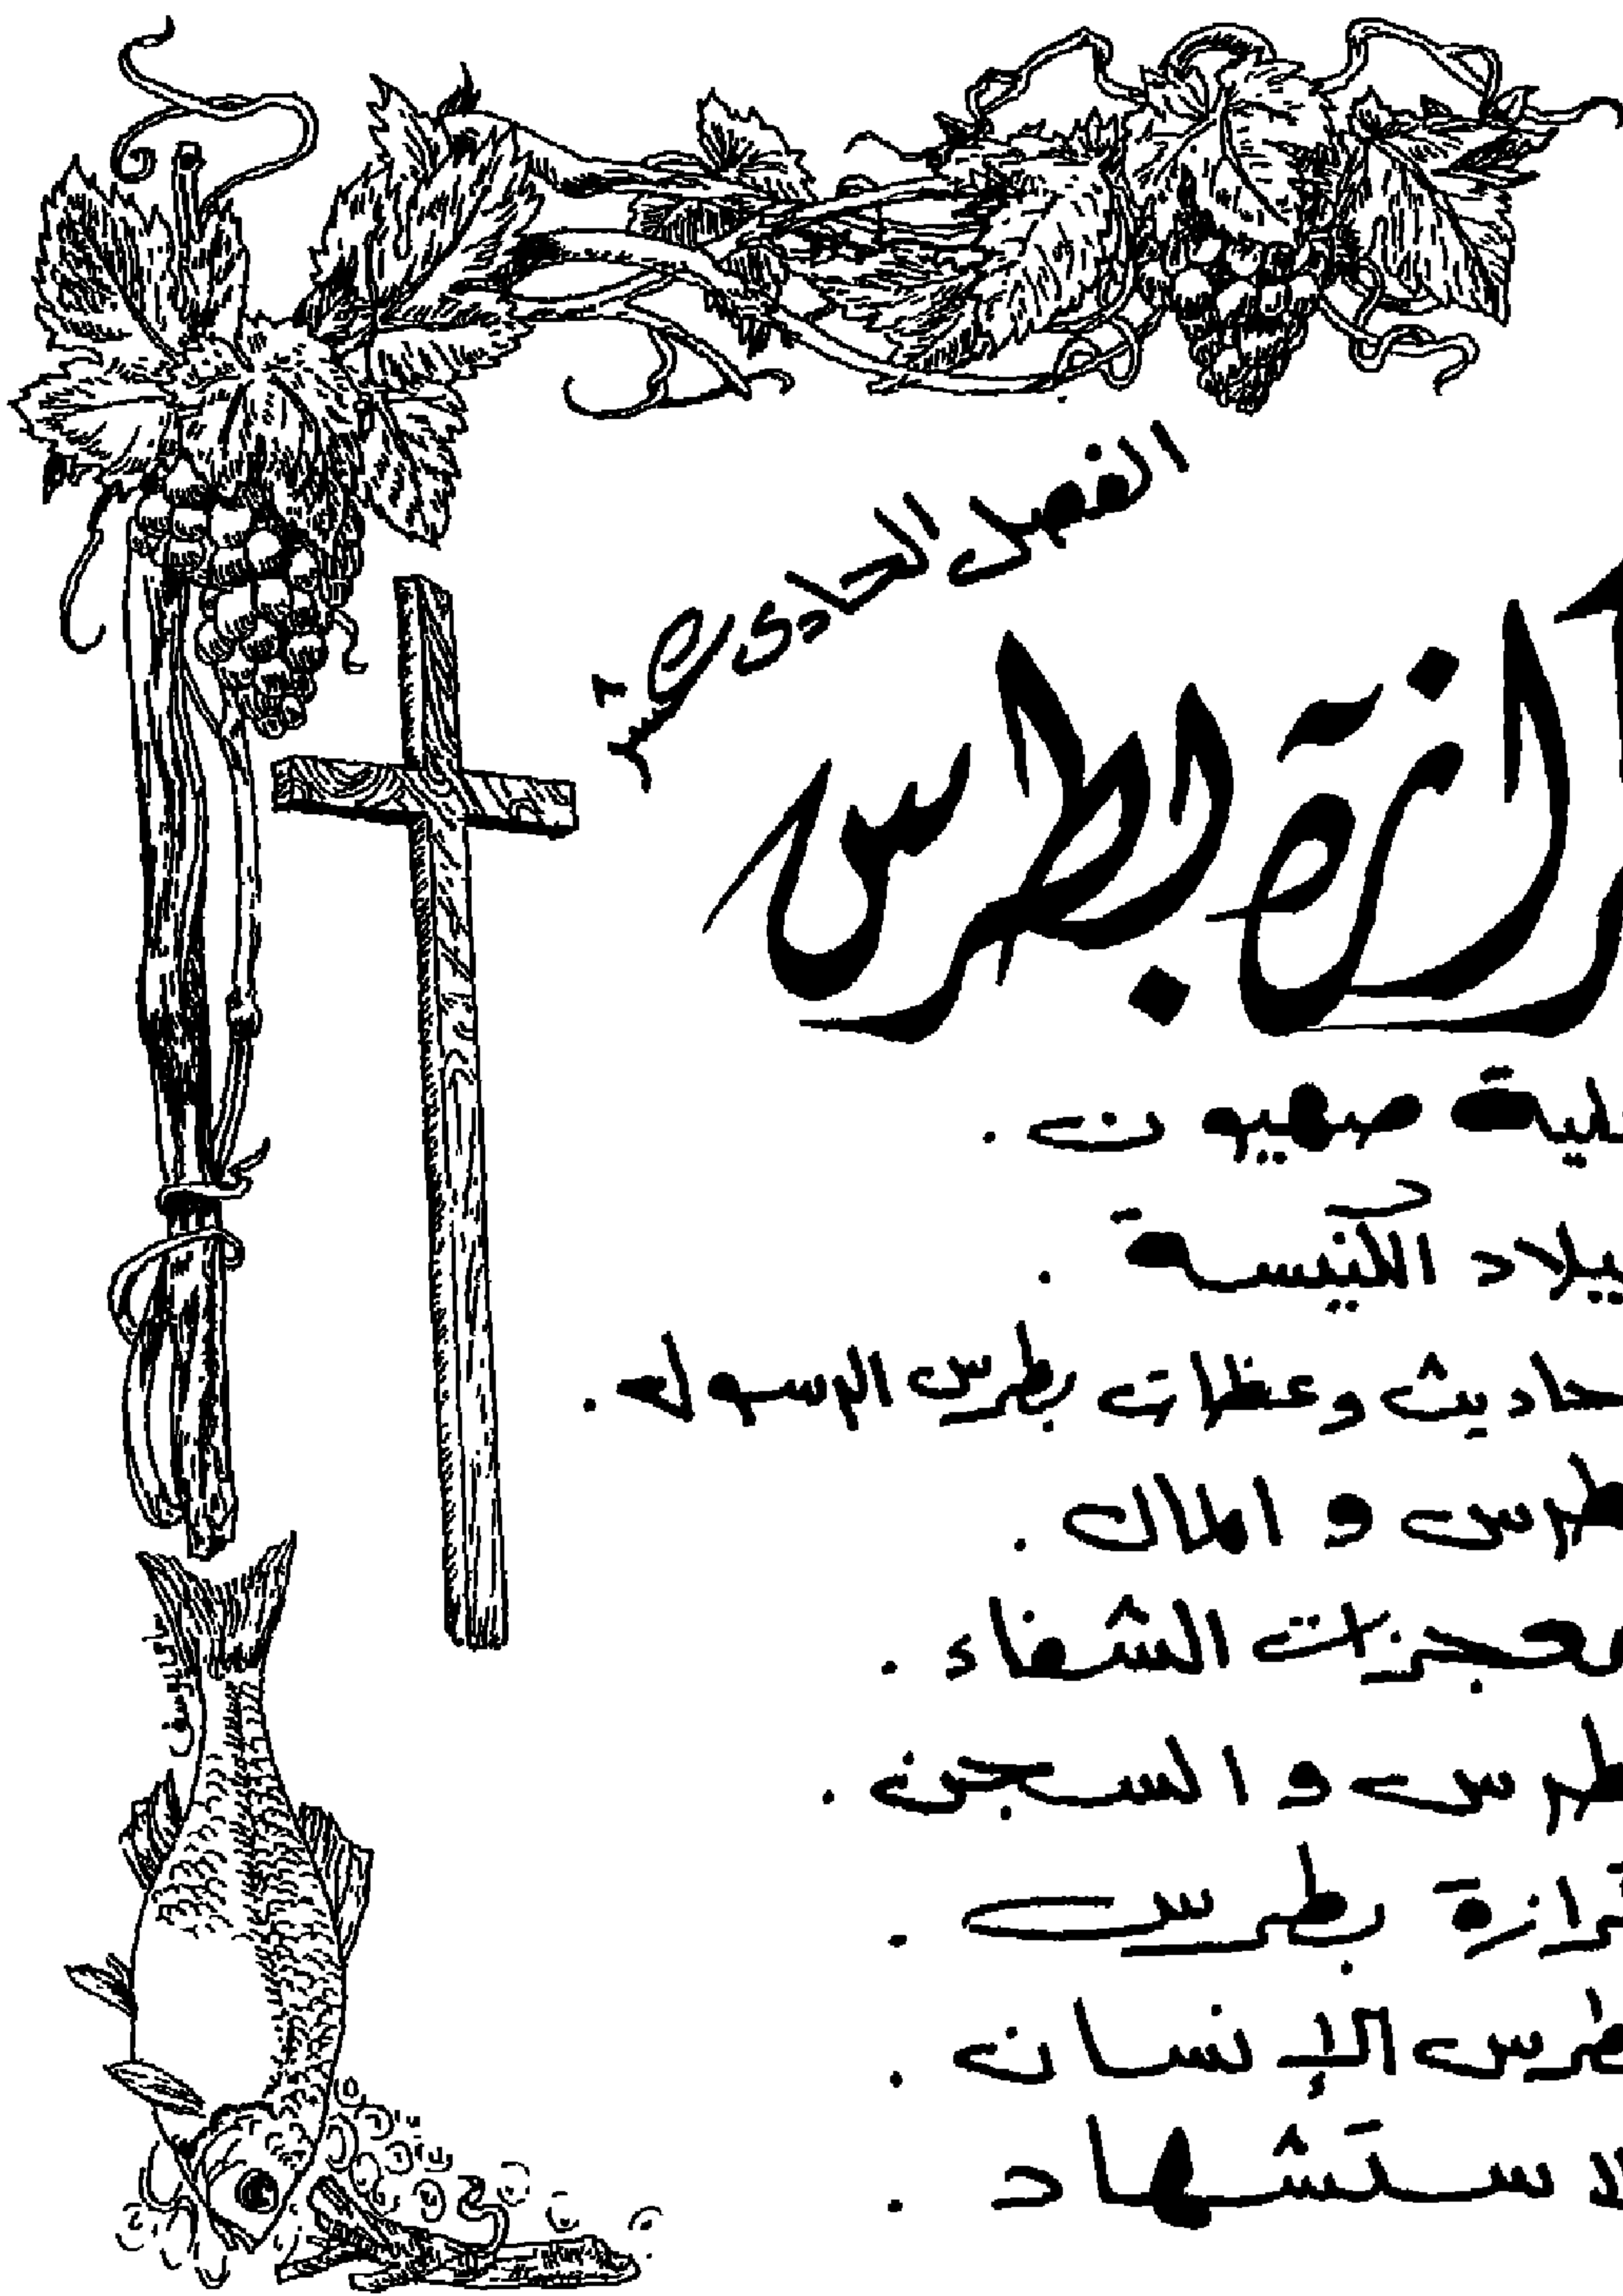 الفصل الحادى عشر
رازة بطرس
لية صهيون .
يلاد الكنيسة .
حاديث وعظات بطرس الرسول .
طرس و المال .
معجزات الشفاء .
طرس والسجن .
رازة بطرس .
طرس الإنسان .
لاستشهاد .